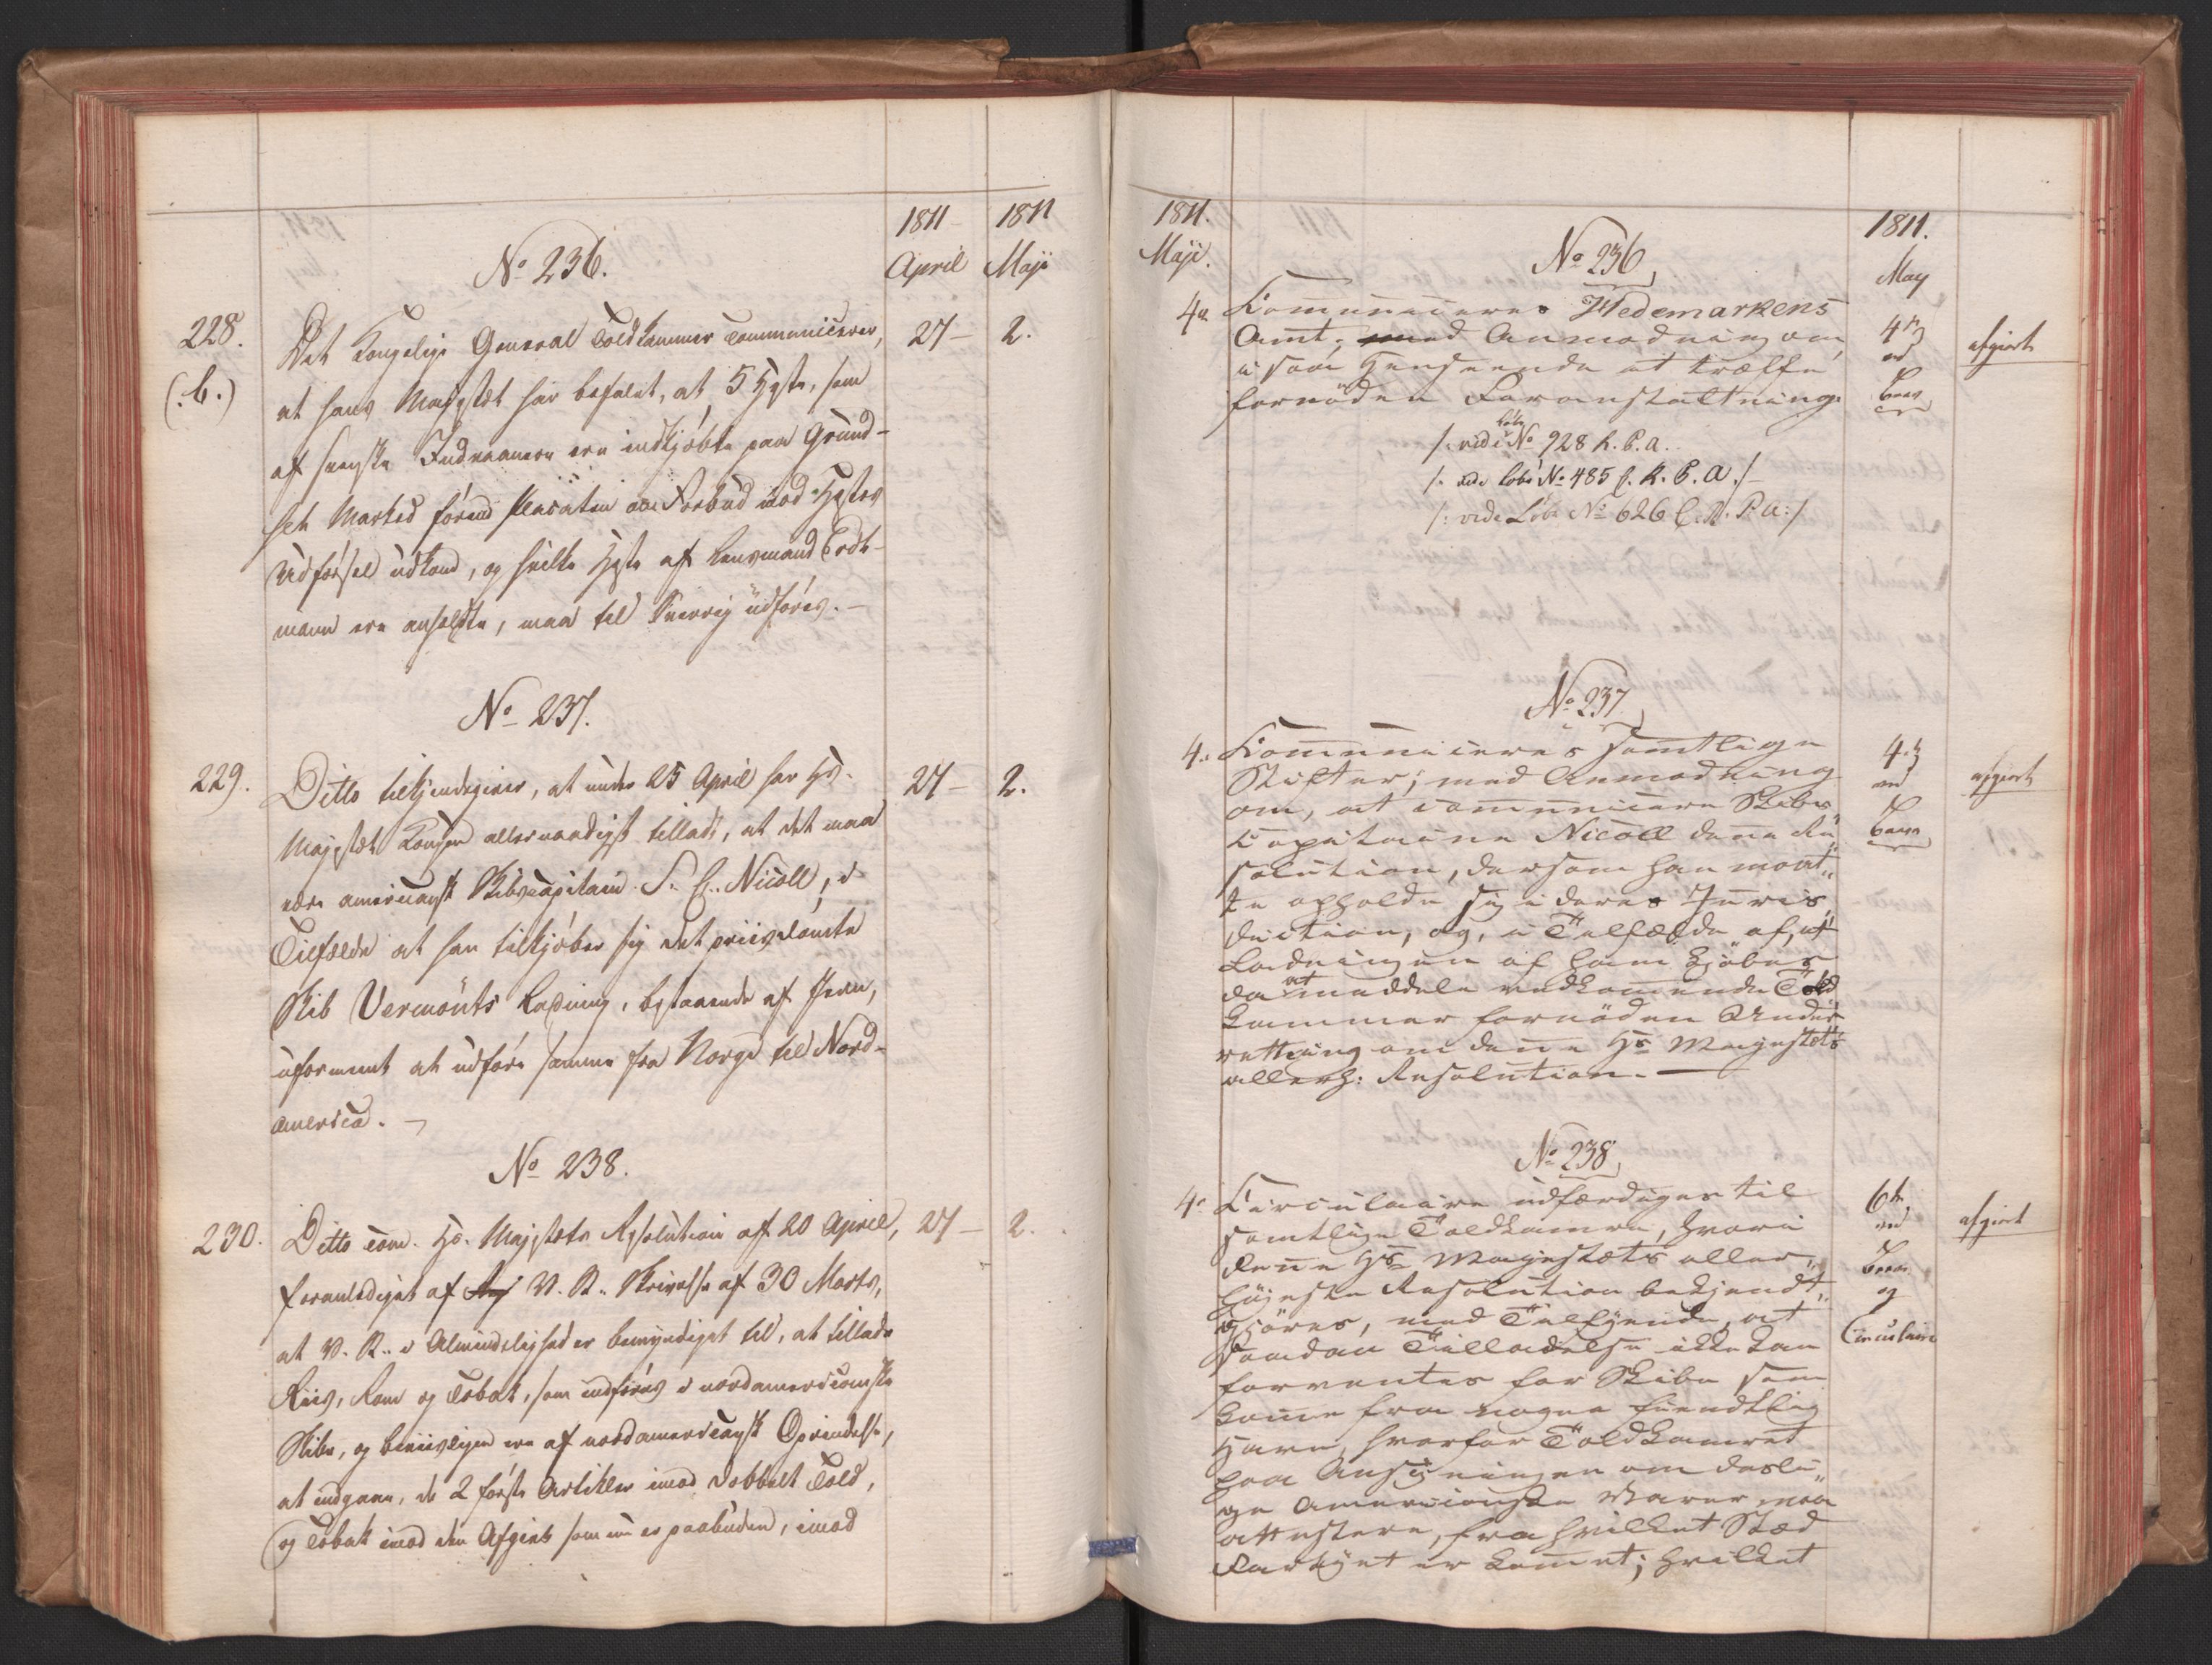 1811 1811
April Maji
No 236.
228. Det Kongelige General Toldkammer communicerer, 27 — 2.
(:b.) at Hans Majestet har befalet, at 5 Heste, som
af svenske Indvaanere ere indkjøbte paa Grund-
set Marked førend Placaten om Forbud mod Hestes
Udførsel udkom, og hvilke Heste af Lensmand
mann ere anholdte, maa til Sverrig udføres. —
No 237.
229. Ditto tilkjendegiver, at under 25 April har Hs. 27 — 2.
Majestet Kongen allernaadigst tilladt, at det maa
være americansk Skibscapitain S. C. Nicoll, i
Tilfælde at han tilkjøber sig det priisdømte
Skib Vermonts Ladning, bestaaende af Jern,
uformeent at udføre samme fra Norge til Nord-
america. —
No 238.
230. Ditto com. Hs. Majestets Resolution af 20 April, 27 — 2.
foranlediget af R. C. Skrivelse af 30 Marts,
at R. C. i Almindelighed er bemyndiget til, at tillade
Riis, Rom og Tobak, som indføres i nordamericanske
Skibe, og beviisligen ere af nordamericansk Oprindelse,
at indgaae, de 2 første Artikler imod dobbelt Told,
og Tobak imod den Afgivt som nu er paabuden, imod
1811. 1811.
Maji. May
No 236
4de Communiceres Hedemarkens
Amt, med Anmodning om
i saa Henseende at træffe
fornøden Foranstaltning.
4de
ved
Brev
afgjort
/: vide Løbe No 928 R. C. a.
/: vide Løbe No 485 f. R. C. a :/
/: vide Løbe No 626 f. R. C. a :/
No 237
4. Communiceres samtlige
Stifter; med Anmodning
om, at communicere Skibs
Capitaine Nicoll denne Re
solution, dersom han maat„
te opholde sig i deres Juris
diction, og, i Tilfælde af, at
Ladningen af ham kjøbes
da at meddele vedkommende Told
kammer fornøden Under
retning om denne Hs Majestets
allerh: Resolution. —
4.
ved
Brev
afgjort
No 238
4. Circulaire udfærdiges til
samtlige Toldkamre, hvori
denne Hs Majestæts aller„
høieste Resolution bekjendt„
gjøres, med Tilføiende, at
saadan Tilladelse ikke kan
forventes for Skibe som
komme fra nogen fiendtlig
Havn, hvorfor Toldkamret
paa Ansøgningen om desli„
ge Americanske Varer maa
attestere, fra hvilket Stæd
Fartøiet er kommet; hvilket
6te
ved
Brev
og
Circulaire
afgjort